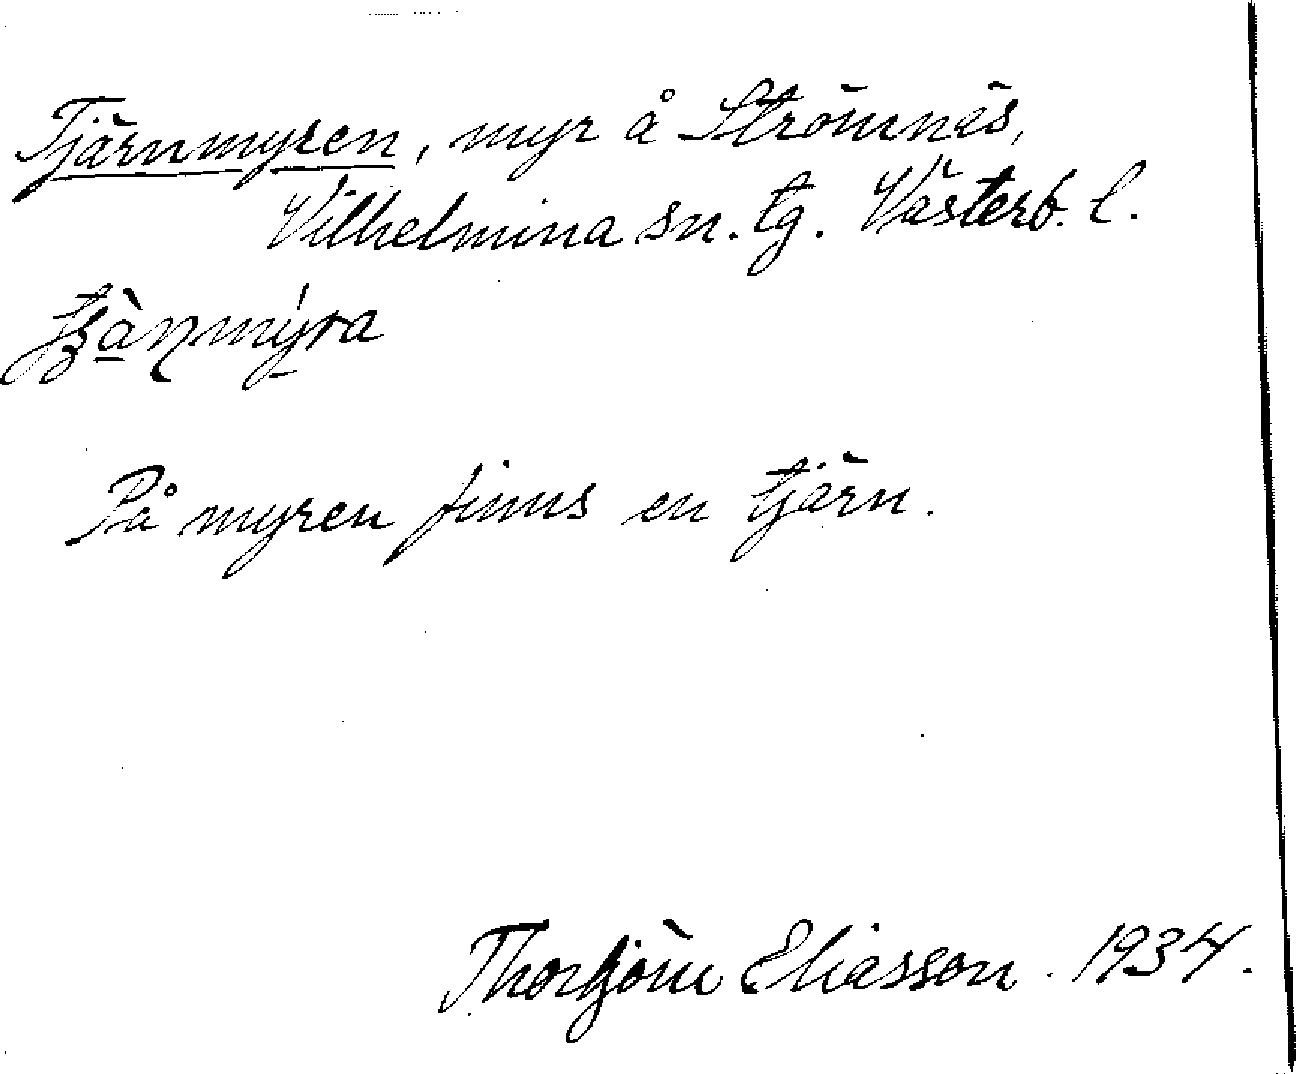 Tjärnmyren, myr å Strömnäs,
Vilhelmina sn. tg. Västerb. l.
På myren finns en tjärn.
Thorbjörn Eliasson. 1934.